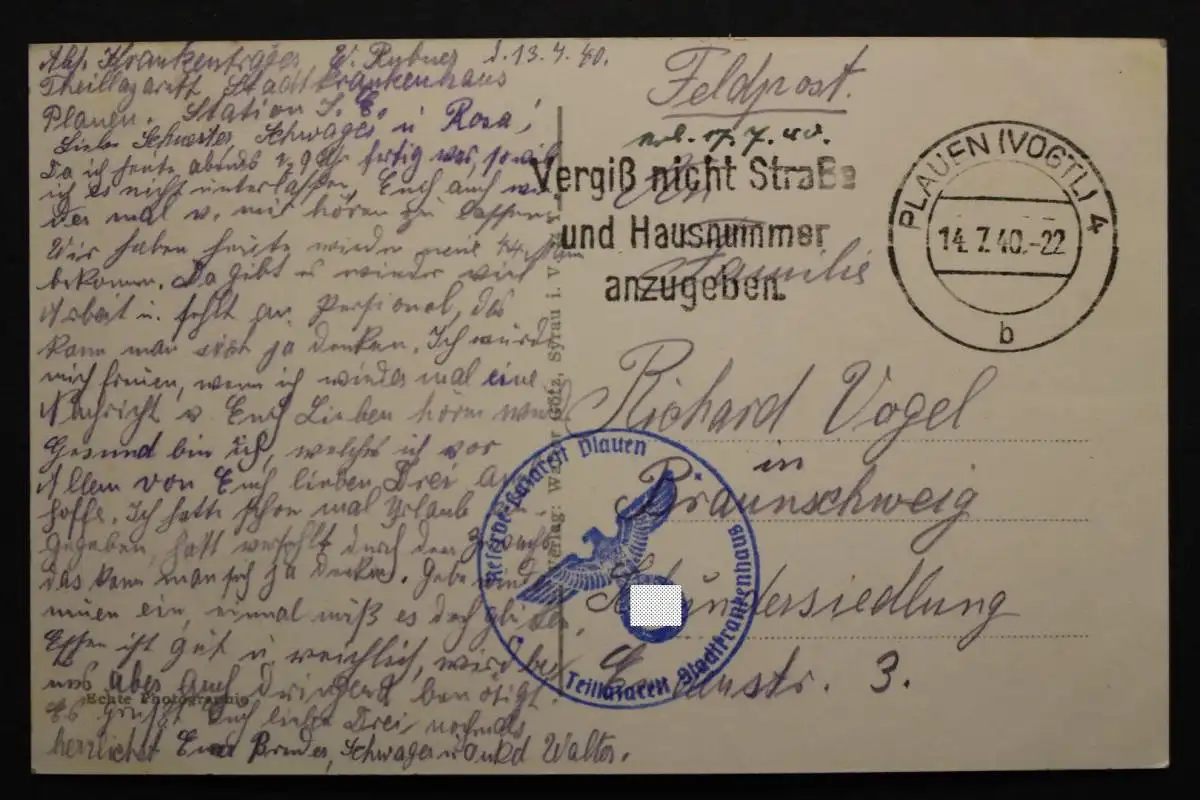 Abs. Krankenträger W. Rybner d. 13.7.40.
Theillazarett Stadtkrankenhaus
Plauen. Station I. E.
Liebe Schwester, Schwager u Rosa,
Da ich heute abends 1/2 9 Uhr fertig war, so will
ich es nicht unterlassen, Euch auch wie
der mal v. mir hören zu lassen.
Wir haben heute wieder neue 44 Mann
bekommen. Da gibt es wieder viel
Arbeit u. fehlt an Persional, das
kann man sich ja denken. Ich würde
mich freuen, wenn ich wieder mal eine
Nachricht v. Euch Lieben hören würde
Gesund bin ich, welches ich vor
Allem von Euch lieben Drei auch
hoffe. Ich hatte schon mal Urlaub
gegeben, hatt verfehlt durch den Zuwachs
das kann man sich ja denken. Gebe
nuen ein, einmal muß es doch glücken.
Essen ist gut u. reichlich, wird bei
uns aber auch dringend benötigt.
Es grüßt Euch liebe Drei nochmals
herzlichst Euer Bruder, Schwager u onkd Walter.
Echte Photographie
Verlag: Walter Götz, Syrau i. V.
Feldpost.
17.7.40.
An
Familie
Richard Vogel
in
Braunschweig
siedlung
3.
Vergiß nicht Straße
und Hausnummer
anzugeben.
PLAUEN (VOGTL) 4
14.7.40.-22
b
Reserve-Lazarett Plauen
Teillazarett Stadtkrankenhaus